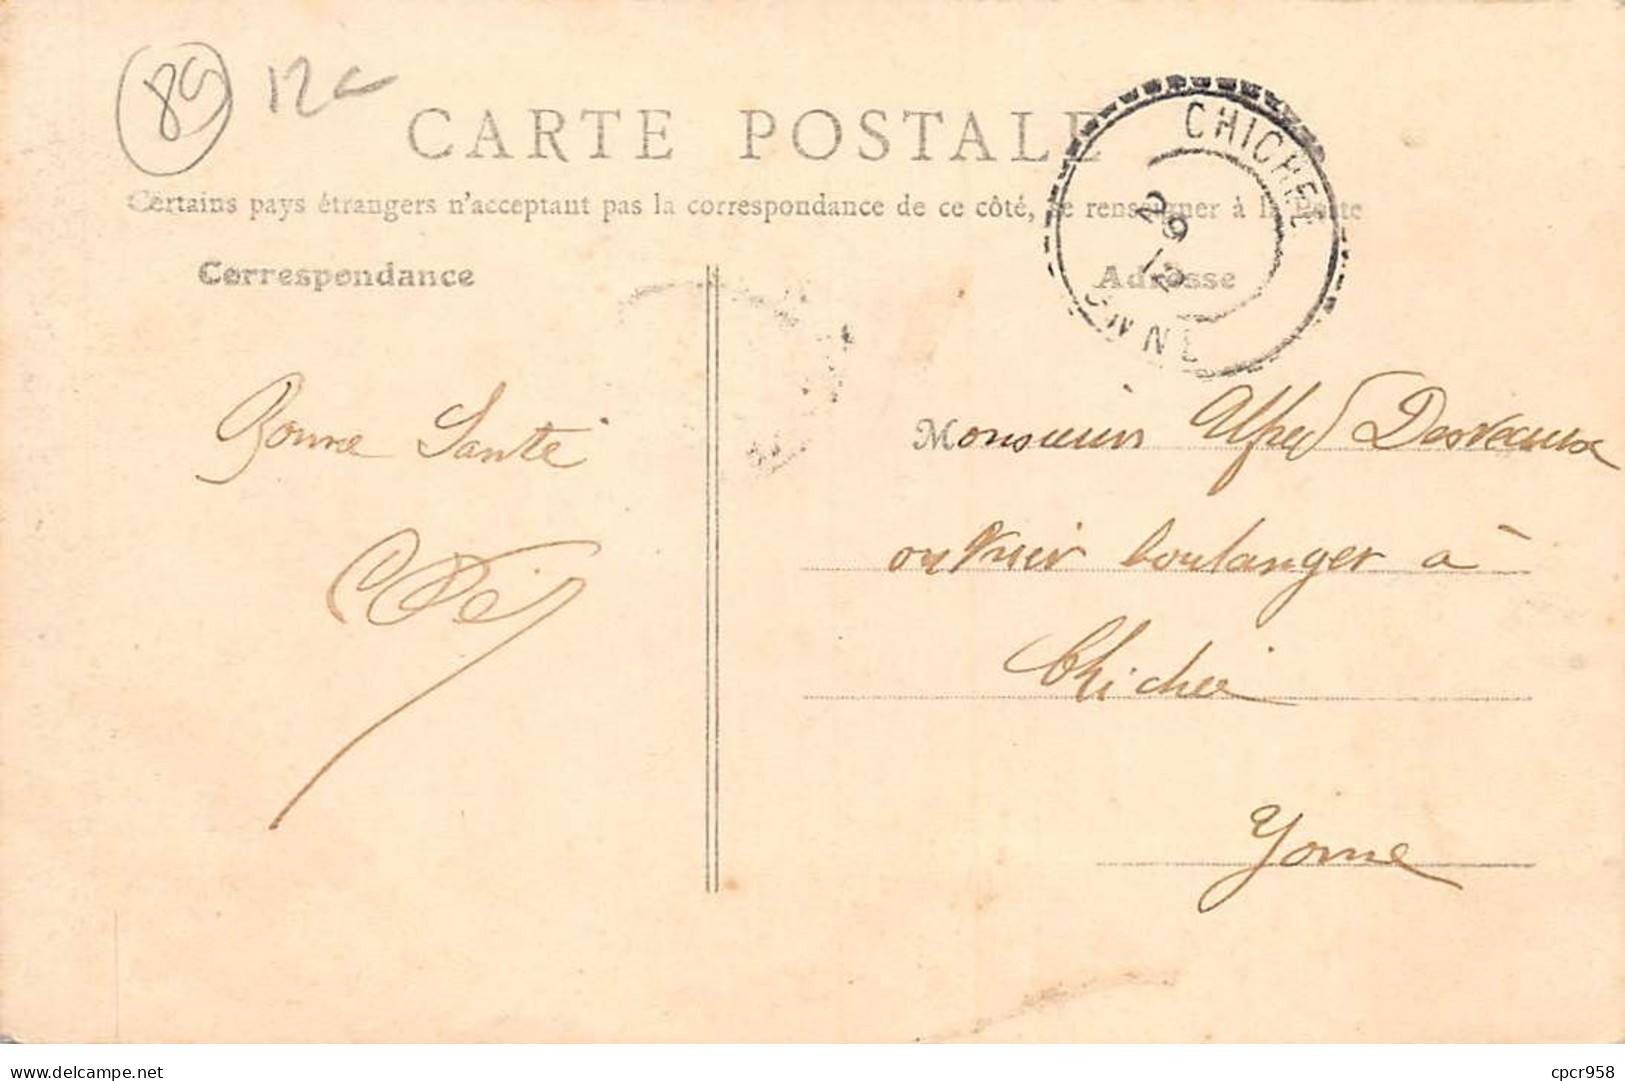 89 12€
CARTE POSTALE
Certains pays étrangers n'acceptant pas la correspondance de ce côté, se renseigner à la Poste
Correspondance
Adresse
CHICHEE
29
12
YONNE
Bonne Santé
Monsieur Alfred Desvaux
ouvrier boulanger à
Chichée
Yonne
Delcampe.net
cpcr958